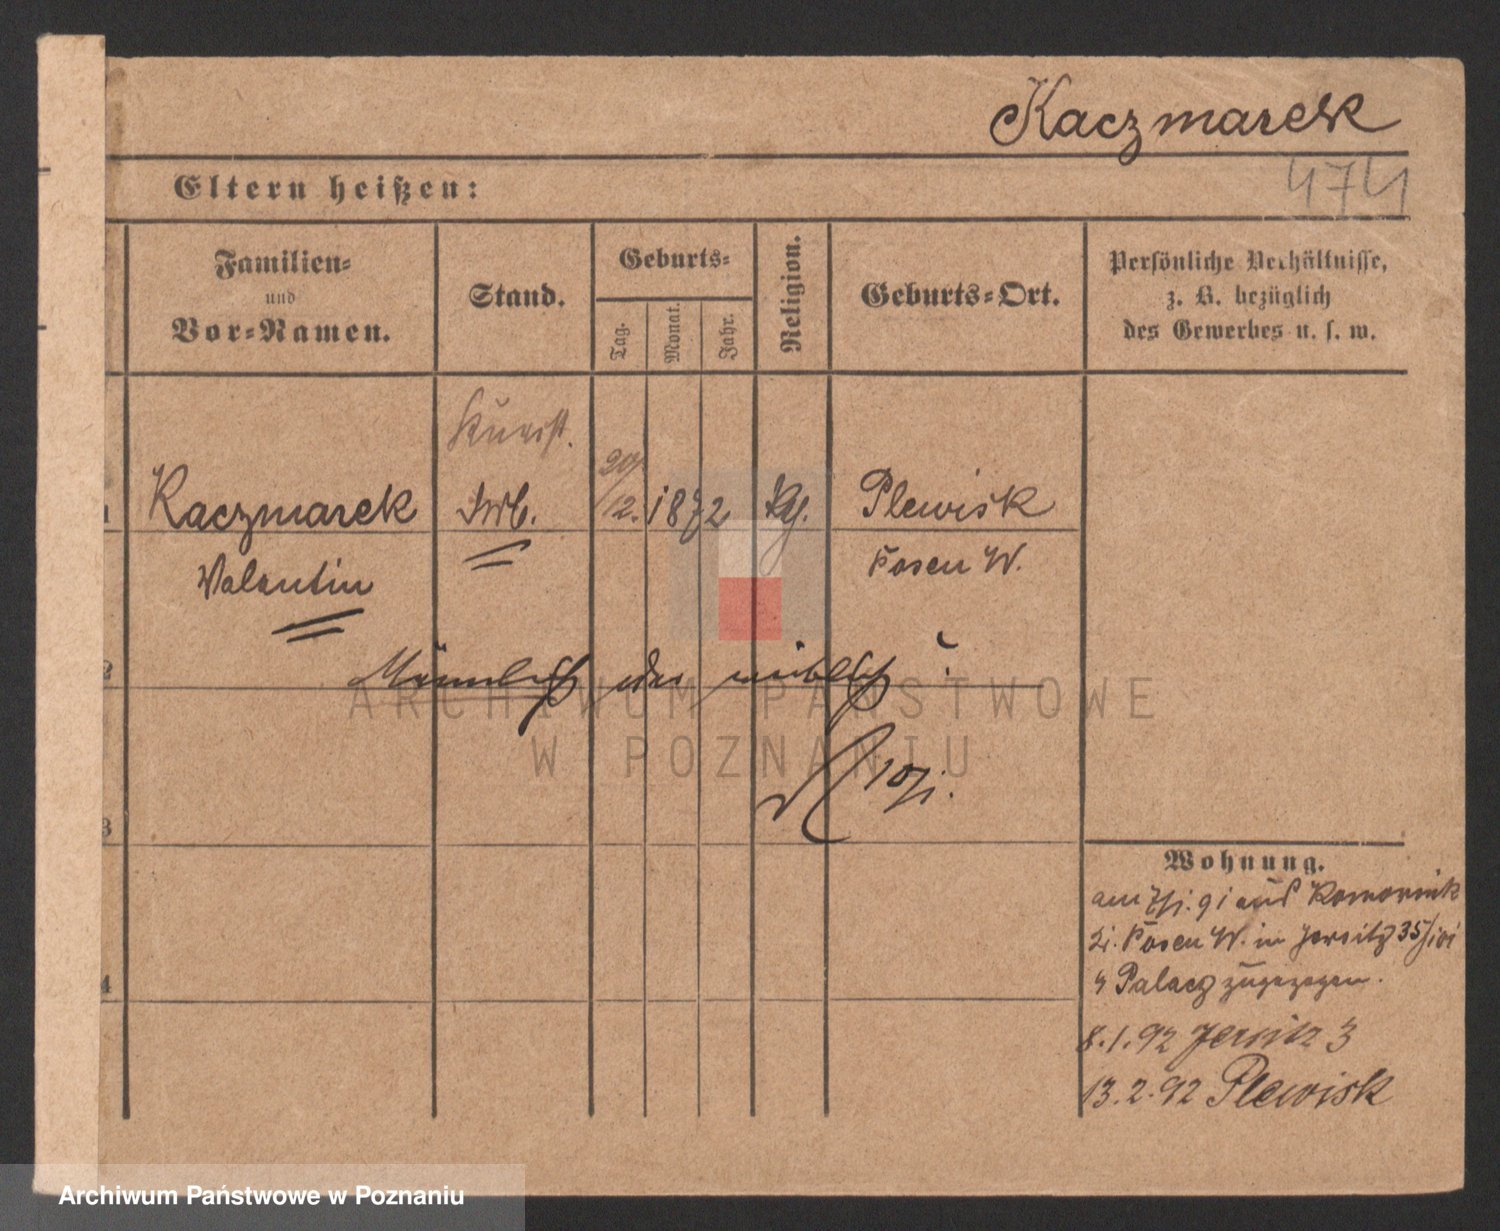 Kaczmarek
474
Eltern heißen:
Familien-
und
Vor-Namen.
Stand.
Geburts-
Tag.
Monat.
Jahr.
Religion.
Geburts-Ort.
Persönliche Verhältnisse,
z. B. bezüglich
des Gewerbes u. s. w.
1
Kaczmarek
Arb.
20/
12.
1872
Kg.
Plewisk
Valentin
Posen W.
2
Männlich oder weiblich ?
ARCHIWUM PAŃSTWOWE
W POZNANIU
3
Wohnung.
am 91 aus Komornik
Posen W. in Jersitz 35/
Palacz zugezogen.
4
8.1.92 Jersitz 3
13.2.92 Plewisk
Archiwum Państwowe w Poznaniu